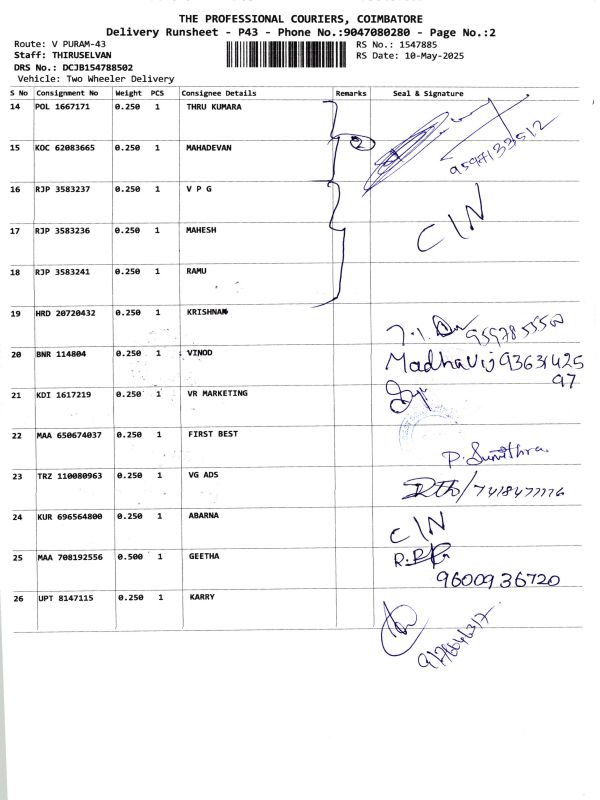 THE PROFESSIONAL COURIERS, COIMBATORE
Delivery Runsheet - P43 - Phone No.:9047080280 - Page No.:2
Route: V PURAM-43
RS No.: 1547885
Staff: THIRUSELVAN
RS Date: 10-May-2025
DRS No.: DCJB154788502
Vehicle: Two Wheeler Delivery
S No Consignment No Weight PCS Consignee Details Remarks Seal & Signature
14 POL 1667171 0.250 1 THRU KUMARA
2
9597133512
15 KOC 62083665 0.250 1 MAHADEVAN
16 RJP 3583237 0.250 1 V P G
C/N
17 RJP 3583236 0.250 1 MAHESH
18 RJP 3583241 0.250 1 RAMU
19 HRD 20720432 0.250 1 KRISHNAN
20 BNR 114804 0.250 1 VINOD Madhavi 93631425
97
21 KDI 1617219 0.250 1 VR MARKETING
22 MAA 650674037 0.250 1 FIRST BEST P. Sumithra.
23 TRZ 110080963 0.250 1 VG ADS
24 KUR 696564800 0.250 1 ABARNA C/N
25 MAA 708192556 0.500 1 GEETHA
9600936720
26 UPT 8147115 0.250 1 KARRY